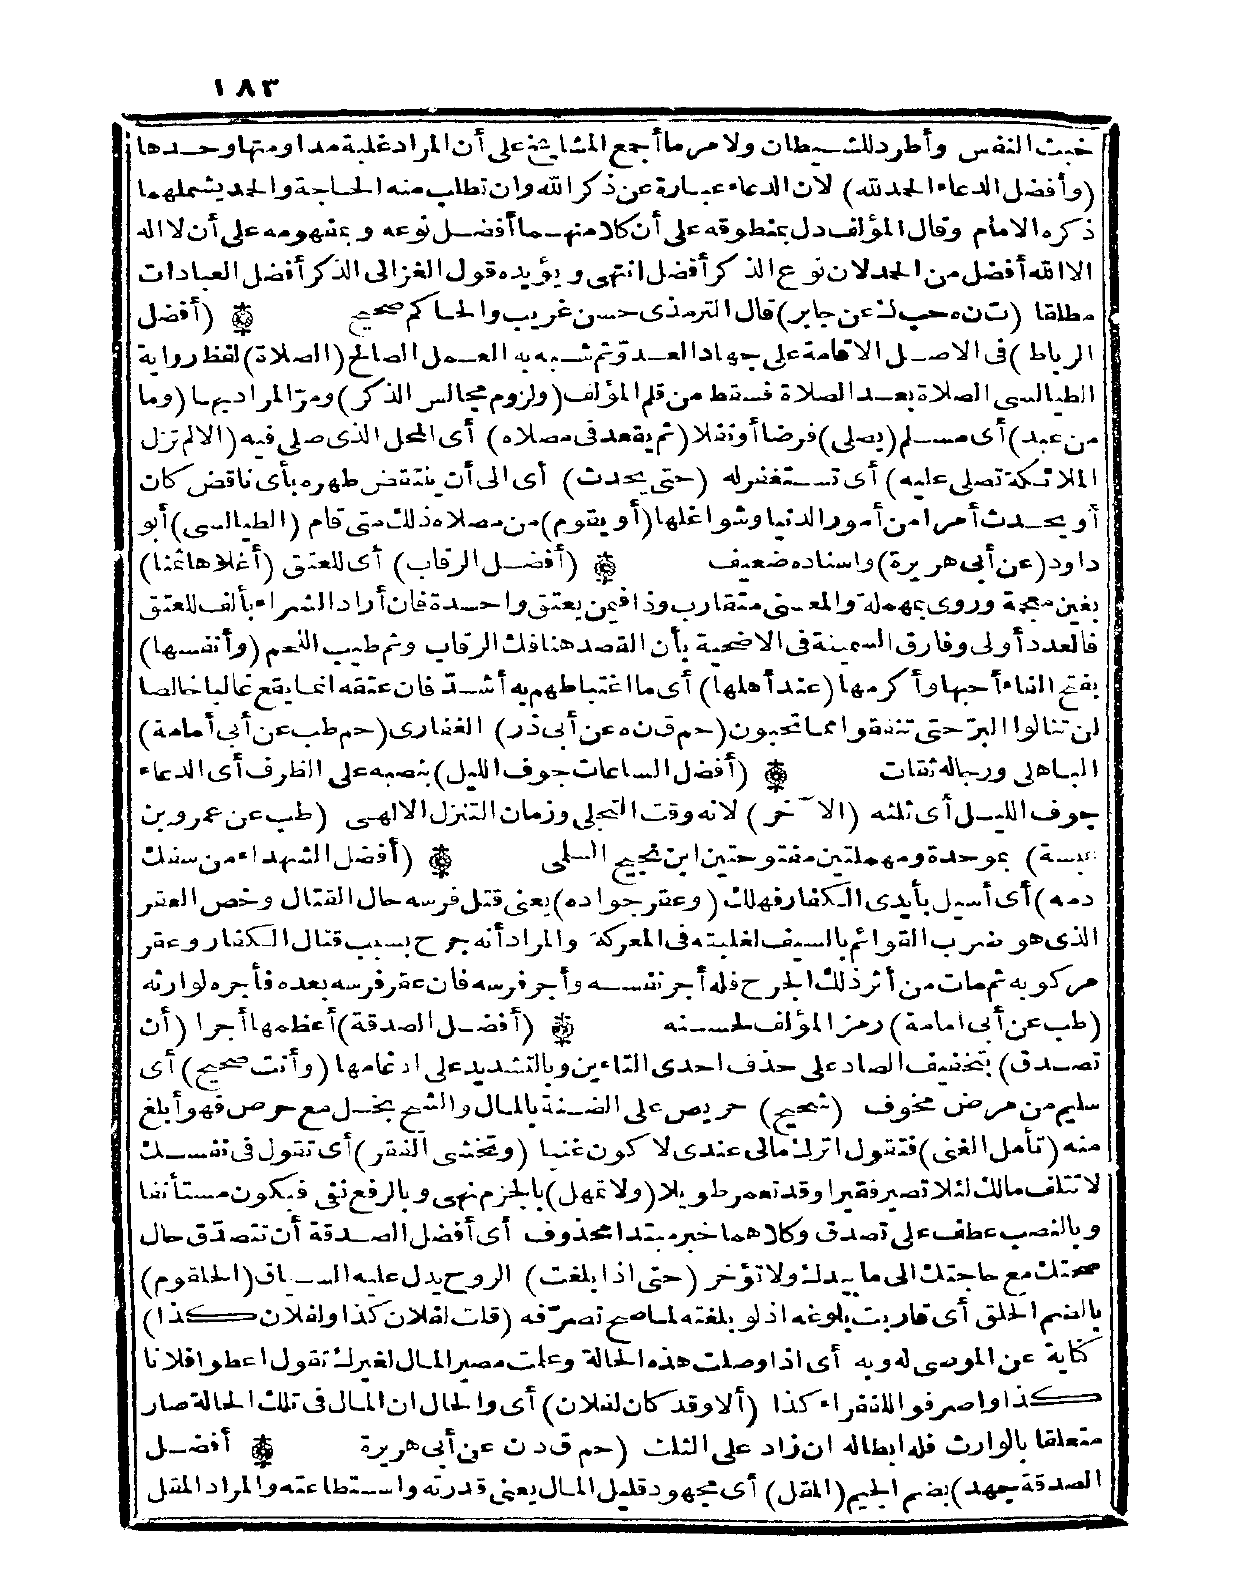 ١٨٣
خبث النفس وأطرد للشيطان ولامر ما أجمع المشايخ على أن المراد غلبة مداومتها وحدها
(وأفضل الدعاء الحمد لله) لان الدعاء عبارة عن ذكر الله وان تطلب منه الحاجة والحمد يشملهما
ذكره الامام وقال المؤلف دل بمنطوقه على أن كلا منهما أفضل نوعه وبمفهومه على أن لا اله
الا الله أفضل من الحمد لان نوع الذكر أفضل انتهى ويؤيده قول الغزالى الذكر أفضل العبادات
مطلقا (ت ن ه حب ك عن جابر) قال الترمذى حسن غريب والحاكم صحيح ۞ (أفضل
الرباط) فى الاصل الاقامة على جهاد العدو ثم شبه به العمل الصالح (الصلاة) لفظ رواية
الطيالسى الصلاة بعد الصلاة فسقط من قلم المؤلف (ولزوم مجالس الذكر) ومرّ المراد بها (وما
من عبد) أى مسلم (يصلى) فرضا أو نفلا (ثم يقعد فى مصلاه) أى المحل الذى صلى فيه (الا لم تزل
الملائكة تصلى عليه) أى تستغفر له (حتى يحدث) أى الى أن ينتقض طهره بأى ناقض كان
أو يحدث أمرا من أمور الدنيا وشواغلها (أو يقوم) من مصلاه ذلك متى قام (الطيالسى) أبو
داود (عن أبى هريرة) واسناده ضعيف ۞ (أفضل الرقاب) أى للعتق (أغلاها ثمنا)
بغين معجمة وروى بمهملة والمعنى متقارب وذا فيمن يعتق واحدة فان أراد الشراء بألف للعتق
فالعدد أولى وفارق السمينة فى الاضحية بأن القصد هنا فك الرقاب وثم طيب اللحم (وأنفسها)
بفتح الفاء أحبها وأكرمها (عند أهلها) أى ما اغتباطهم به أشدّ فان عتقه انما يقع غالبا خالصا
لن تنالوا البرّ حتى تنفقوا مما تحبون (حم ق ن ه عن أبى ذر) الغفارى (حم طب عن أبى أمامة)
الباهلى ورجاله ثقات ۞ (أفضل الساعات جوف الليل) بنصبه على الظرف أى الدعاء
جوف الليل أى ثلثه (الآخر) لانه وقت التجلى وزمان التنزل الالهى (طب عن عمرو بن
عبسة) بموحدة ومهملتين مفتوحتين ابن نجيح السلمى ۞ (أفضل الشهداء من سفك
دمه) أى أسيل بأيدى الكفار فهلك (وعقر جواده) يعنى قتل فرسه حال القتال وخص العقر
الذى هو ضرب القوائم بالسيف لغلبته فى المعركة والمراد أنه جرح بسبب قتال الكفار وعقر
مركوبه ثم مات من أثر ذلك الجرح فله أجر نفسه وأجر فرسه فان عقر فرسه بعده فأجره لوارثه
(طب عن أبى امامة) رمز المؤلف لحسنه ۞ (أفضل الصدقة) أعظمها أجرا (أن
تصدق) بتخفيف الصاد على حذف احدى التاءين وبالتشديد على ادغامها (وأنت صحيح) أى
سليم من مرض مخوف (شحيح) حريص على الضنة بالمال والشح بخل مع حرص فهو أبلغ
منه (تأمل الغنى) فتقول اترك مالى عندى لا كون غنيا (وتخشى الفقر) أى تقول فى نفسك
لا تتلف مالك لئلا تصير فقيرا وقد تعمر طويلا (ولا تمهل) بالجزم نهى وبالرفع نفى فيكون مستأنفا
وبالنصب عطف على تصدق وكلاهما خبر مبتدا محذوف أى أفضل الصدقة أن تتصدّق حال
صحتك مع حاجتك الى ما بيدك ولا تؤخر (حتى اذا بلغت) الروح يدل عليه السياق (الحلقوم)
بالضم الحلق أى قاربت بلوغه اذ لو بلغته لما صح تصرّفه (قلت لفلان كذا ولفلان كذا)
كناية عن الموصى له وبه أى اذا وصلت هذه الحالة وعلمت مصير المال لغيرك تقول اعطوا فلانا
كذا واصرفوا للفقراء كذا (ألا وقد كان لفلان) أى والحال ان المال فى تلك الحالة صار
متعلقا بالوارث فله ابطاله ان زاد على الثلث (حم ق د ن عن أبى هريرة ۞ أفضل
الصدقة جهد) بضم الجيم (المقل) أى مجهود قليل المال يعنى قدرته واستطاعته والمراد المقل